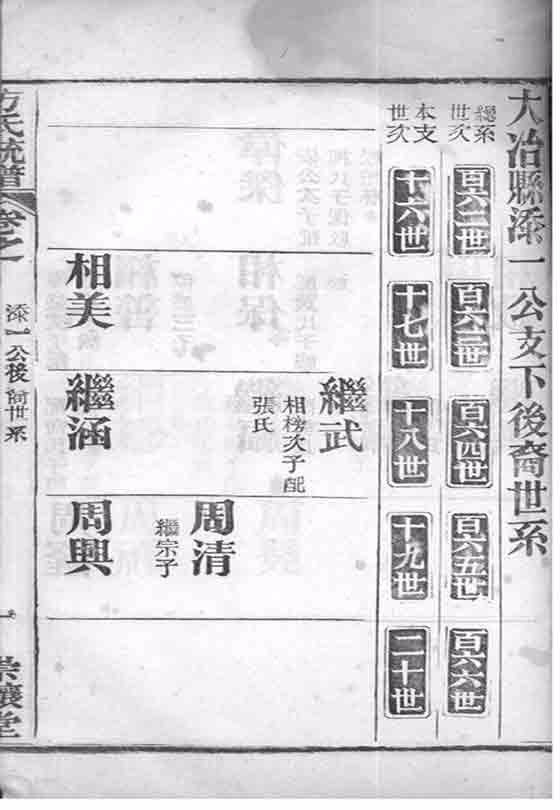 大冶縣添一公支下後裔世系
總系世次
百六二世
百六三世
百六四世
百六五世
百六六世
本支世次
十六世
十七世
十八世
十九世
二十世
繼武
相榜次子配
張氏
周清
繼宗子
相美
繼涵
周興
方氏統譜
卷之一
添一公後裔世系
一